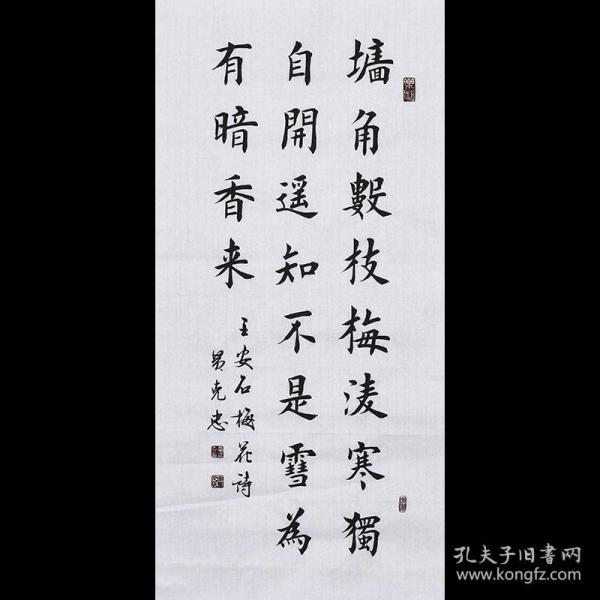 墻角數枝梅凌寒獨
自開遥知不是雪為
有暗香来
王安石梅花詩
吴克忠
孔夫子旧书网
www.kongfz.com